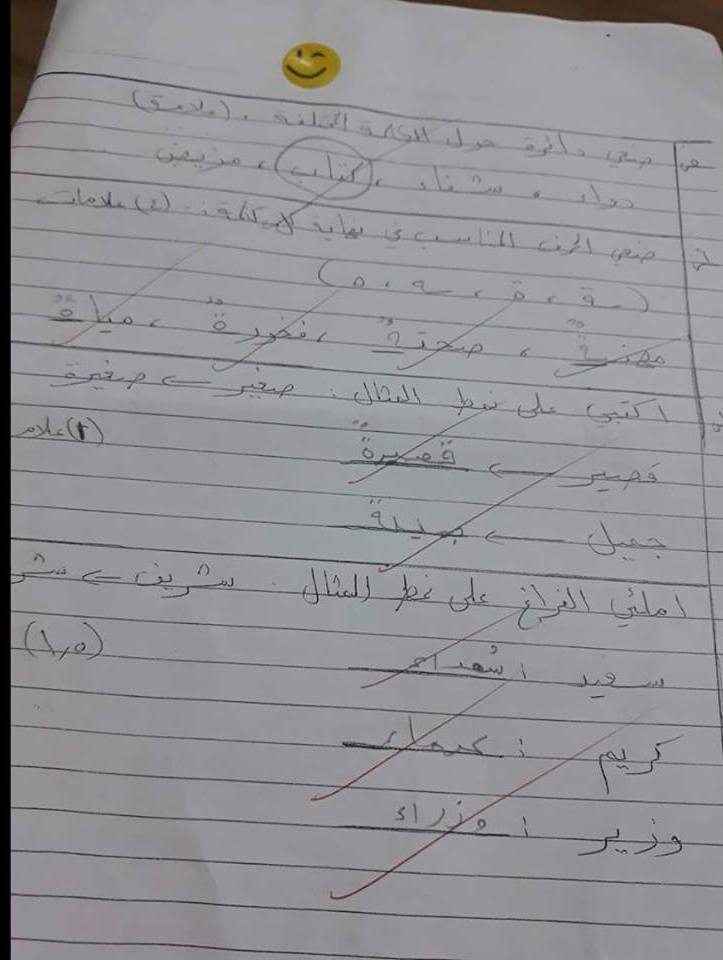 ضعي دائرة حول الكلمة المختلفة . (علامة)
دواء ، شفاء ، كتاب ، مريض
ضعي الحرف المناسب في نهاية كل كلمة : (٤) علامات
(ـة ، ة ، ـه ، ه)
، صحتـة ، فخورة ، مياة
اكتبي على نمط المثال : صغير ← صغيرة
(٢) علام
قصير ← قصيرة
جميل ← جميلة
املئي الفراغ على نمط المثال : شريف ← شر
(١,٥)
سعيد : سُعداء
كريم : كرماء
وزير : وزراء